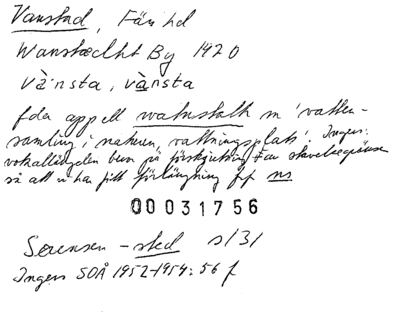 Vanstad, Färs hd
Wanstædht By 1420
vànsta, vànsta
fda appell watnstath m 'vatten-
samling i naturen, vattningsplats'. Ingers:
vokallängden beror på förskjutning av stavelsegräns
så att n har fått förlängning ff ns
00031756
Sørensen -sted s/3/
Ingers SOÅ 1952-1954: 56 f